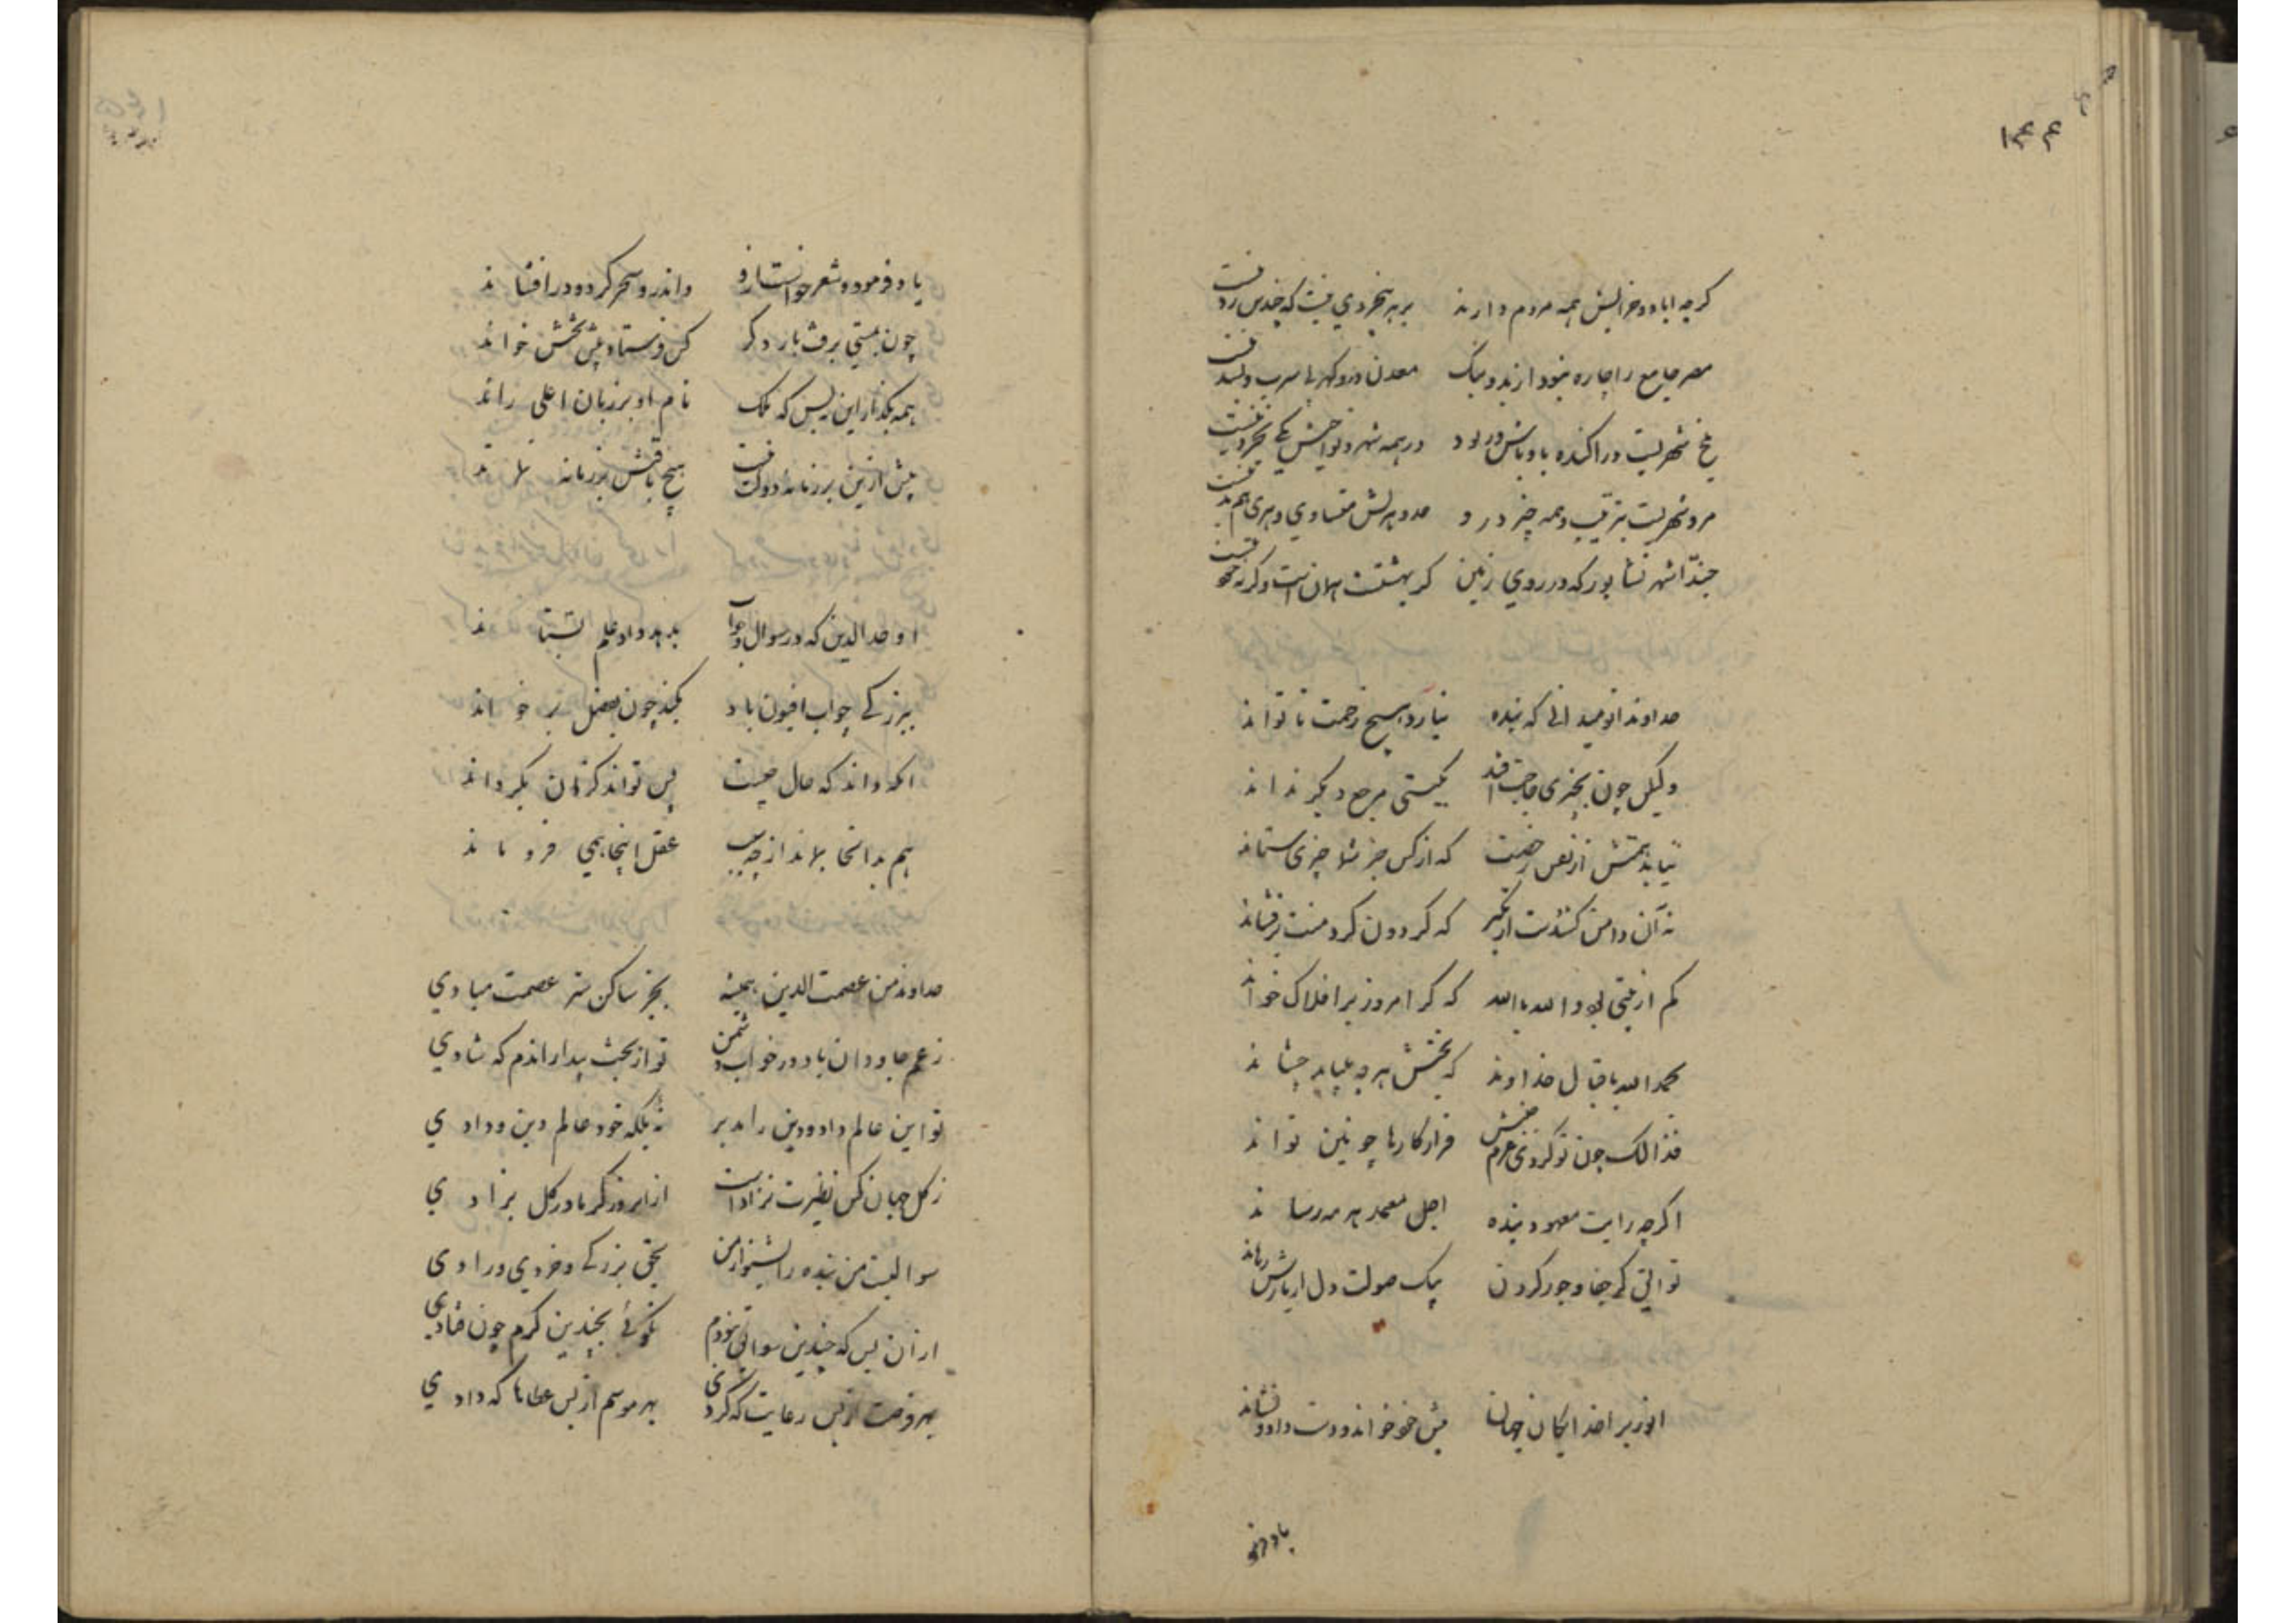 ۱۴۴
گرچه اباد و خرابیش همه مردم دارند بر هر بیخردی نیست که چندین رد نیست
مصر جامع را چاره نبود از بد و نیک معدن در و گهر بی سرب و بسد نیست
بلخ شهریست در اکنده باوباش و رنود در همه شهر و نواحیش یکی بخرد نیست
مرو شهریست بترتیب و همه چیز درو جد و هزلش متساوی و هری هم بد نیست
حبذا شهر نشابور که در روی زمین گر بهشتست همان است وگرنه خود نیست
خداوندا تو میدانی که بنده نیارد هیچ زحمت تا تواند
ولیکن چون بچیزی حاجت افتد بگیتی مرجع دیگر نداند
نیابد همتش از نفس رخصت که از کس جز شما چیزی ستاند
نه آن دامن کشدت از تکبر که گردون گرد منت برفشاند
کم از بیتی بود والله بالله که گر امروز بر افلاک خواند
بحمدالله باقبال خداوند که بخشش هر چه بباید چشاند
فذالک چون تو کردی عزم جنبش قرار کارها چونین تواند
اگرچه رایت معهود بنده اجل معهد بر مه رساند
تو آنی کز جفا و جور گردون بیک صولت دل از بارش رهاند
انوری را خدایگان جهان پیش خود خواند و دست داد و نشاند
باده فر
باده فرمود و شعر خواست ازو واندرو سحر کرد و در افشاند
چون بمستی برفت بار دگر کس فرستاد و پیش تختش خواند
همه بگذار این نه بس که ملک نام او بر زبان اعلی راند
بیش ازین در زمانه دولت نیست هیچ باقیش در زمانه نماند
اوحدالدین که در سوال و جواب بدهد داد علم بستاند
ببزرگی جواب افیون باد بکند چون بفضل برخواند
آنکه داند که حال چیست پس تواند کزان بگرداند
هم بدانجا بماند از چه سبب عقل اینجا همی فرو ماند
خداوند من عصمت الدین همیشه بجز ساکن ستر عصمت مبادی
ز غم جاودان باد در خواب دشمن تو از بخت بیدار اندم که شادی
تو این عالم داد و دین را مدبر نه بلکه خود عالم دین و دادی
ز کل جهان کس نظیرت نزاد است از امروز گر مادر کل بزادی
سوالیست من بنده را بشنو از من بحق بزرگی و خردی و رادی
از ان پس که چندین سوابق نمودم نگوئی بچندین کرم چون فتادی
بهر فرصت از بس رعایت که کردی بهر موسم از بس عطاها که دادی